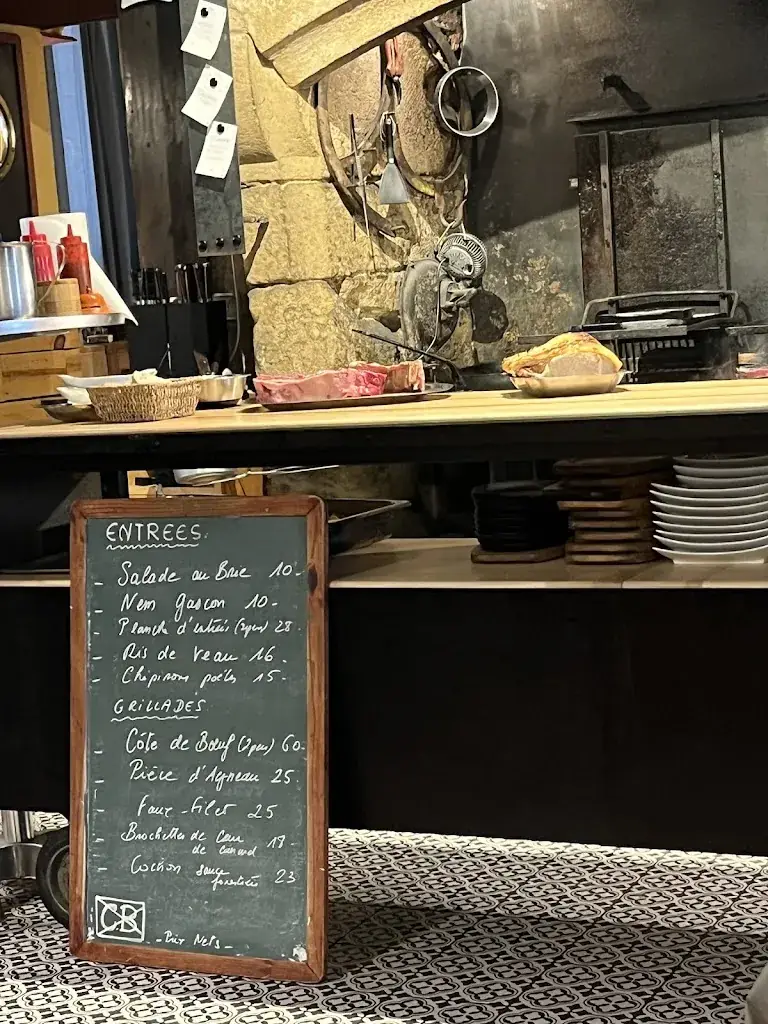 ENTREES
- Salade au Brie 10-
- Nem gascon 10-
- Planche d'entrées (2pers) 28-
- Ris de Veau 16-
- Chipirons poêlés 15-
GRILLADES
- Côte de Bœuf (2pers) 60-
- Pièce d'Agneau 25-
- Faux-Filet 25
- Brochettes de Cœur 18-
de canard
- Cochon sauce 23
forestière
CB
- Prix Nets -